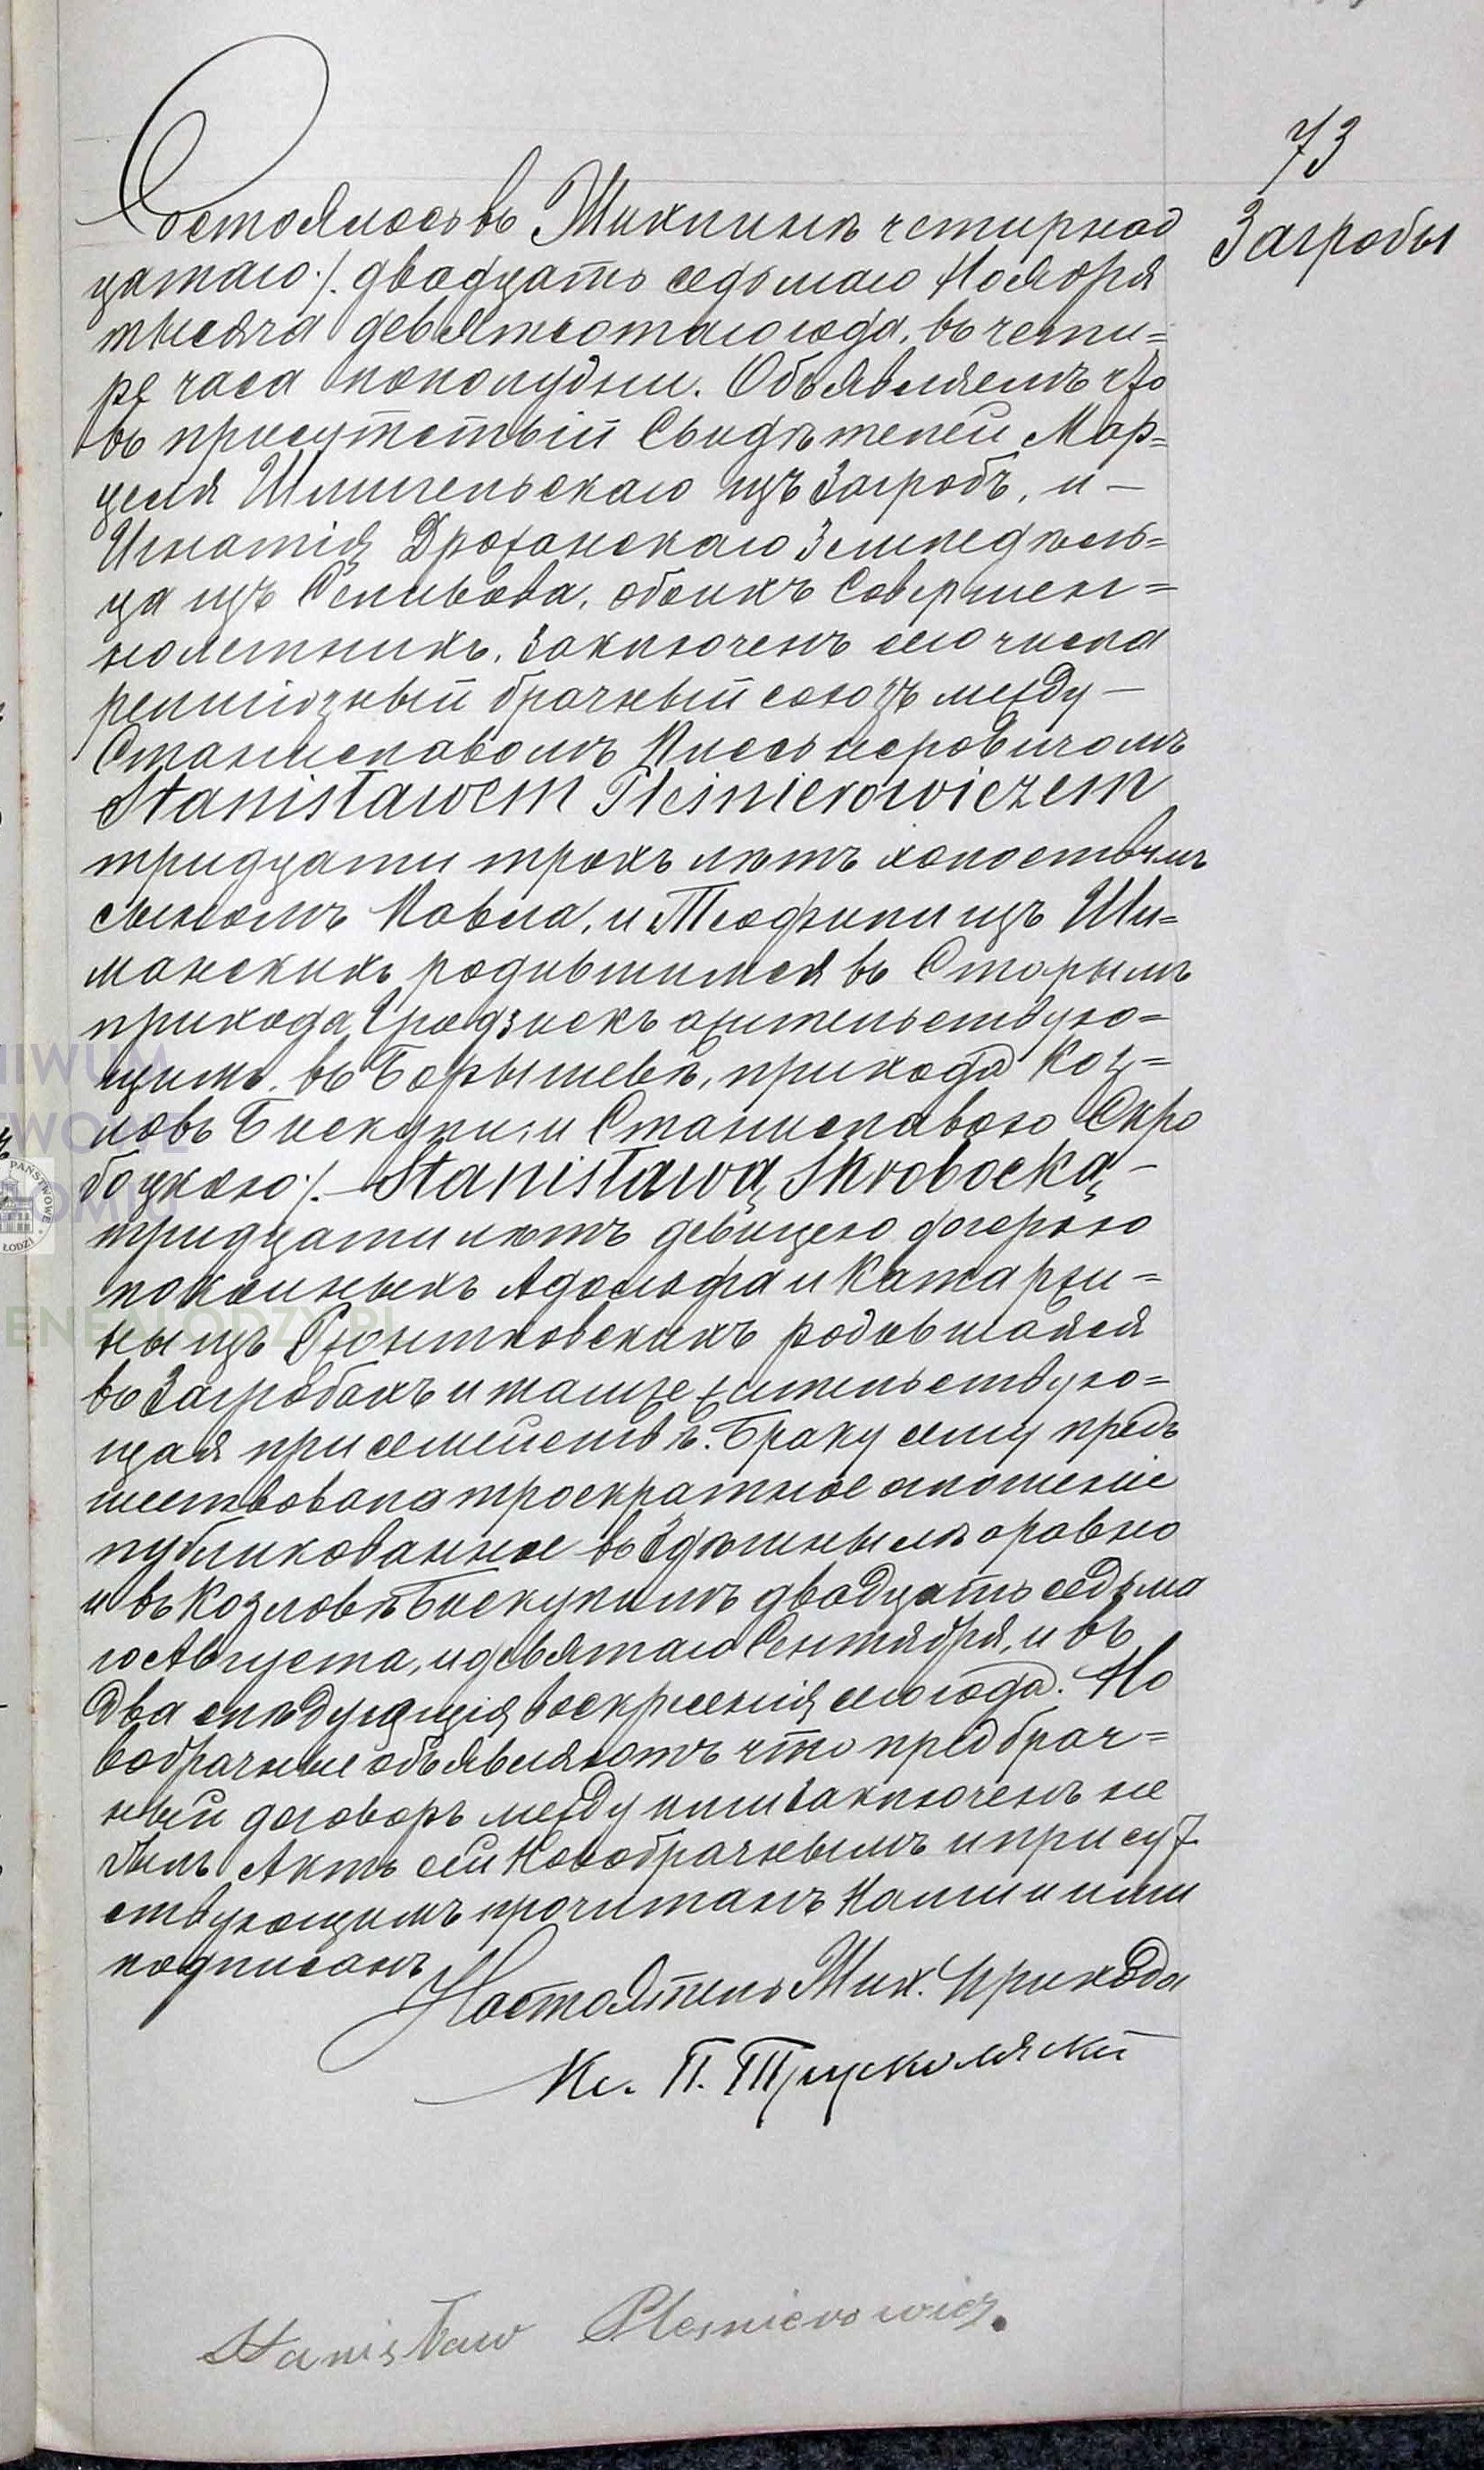 73
Загробы
Состоялось въ Жихлинѣ четирнад
цатаго /. двадцать седьмаго Ноября
тысяча девятсотаго года, въ чети=
ре часа пополудни. Объявляемъ что
въ присутствіи Свидѣтелей Мар=
целя Шлигельскаго изъ Загробъ, и —
Игнатія Дрожанскаго Земледѣль=
ца изъ обоихъ Совершен=
нолетнихъ, заключенъ сего числа
религіозный брачный союзъ между —
Станиславомъ Плесьнеровичомъ
Stanisławem Pleśnierowiczem
тридцати трохъ лѣтъ холоствымъ
сыномъ Павла, и Теофили изъ Ши=
манскихъ родившимся въ Старымъ
прихода Гродзискъ жительствую=
щимъ въ Борышевѣ, прихода Коз=
ловъ Бискупи: и Станиславою Скро
боцкою /. — Stanisławą Skrobocką —
тридцати лѣтъ девицею дочерью
покойныхъ Адольфа и Катаржи=
ны изъ Ржонтковскихъ родившаяся
въ Загробахъ и тамже жительствую=
щая при семействѣ. Браку сему пред
шествовала троекратное оглошеніе
публикованное въ Здѣшнымъ оровно
и въ Козловѣ Бискупимъ двадцать седьма
го Августа, и девятаго Сентября, и въ
два слѣдующія воскрсенія сего года. Но
вобрачные объявляютъ что предбрач=
ный договоръ между ними заключенъ не
былъ Актъ сей Новобрачнымъ и присут
ствующимъ прочитанъ Нами и ими
подписанъ
Настоятель Жих. Прихода
Кс. П.
Stanisław Plesnierowicz.